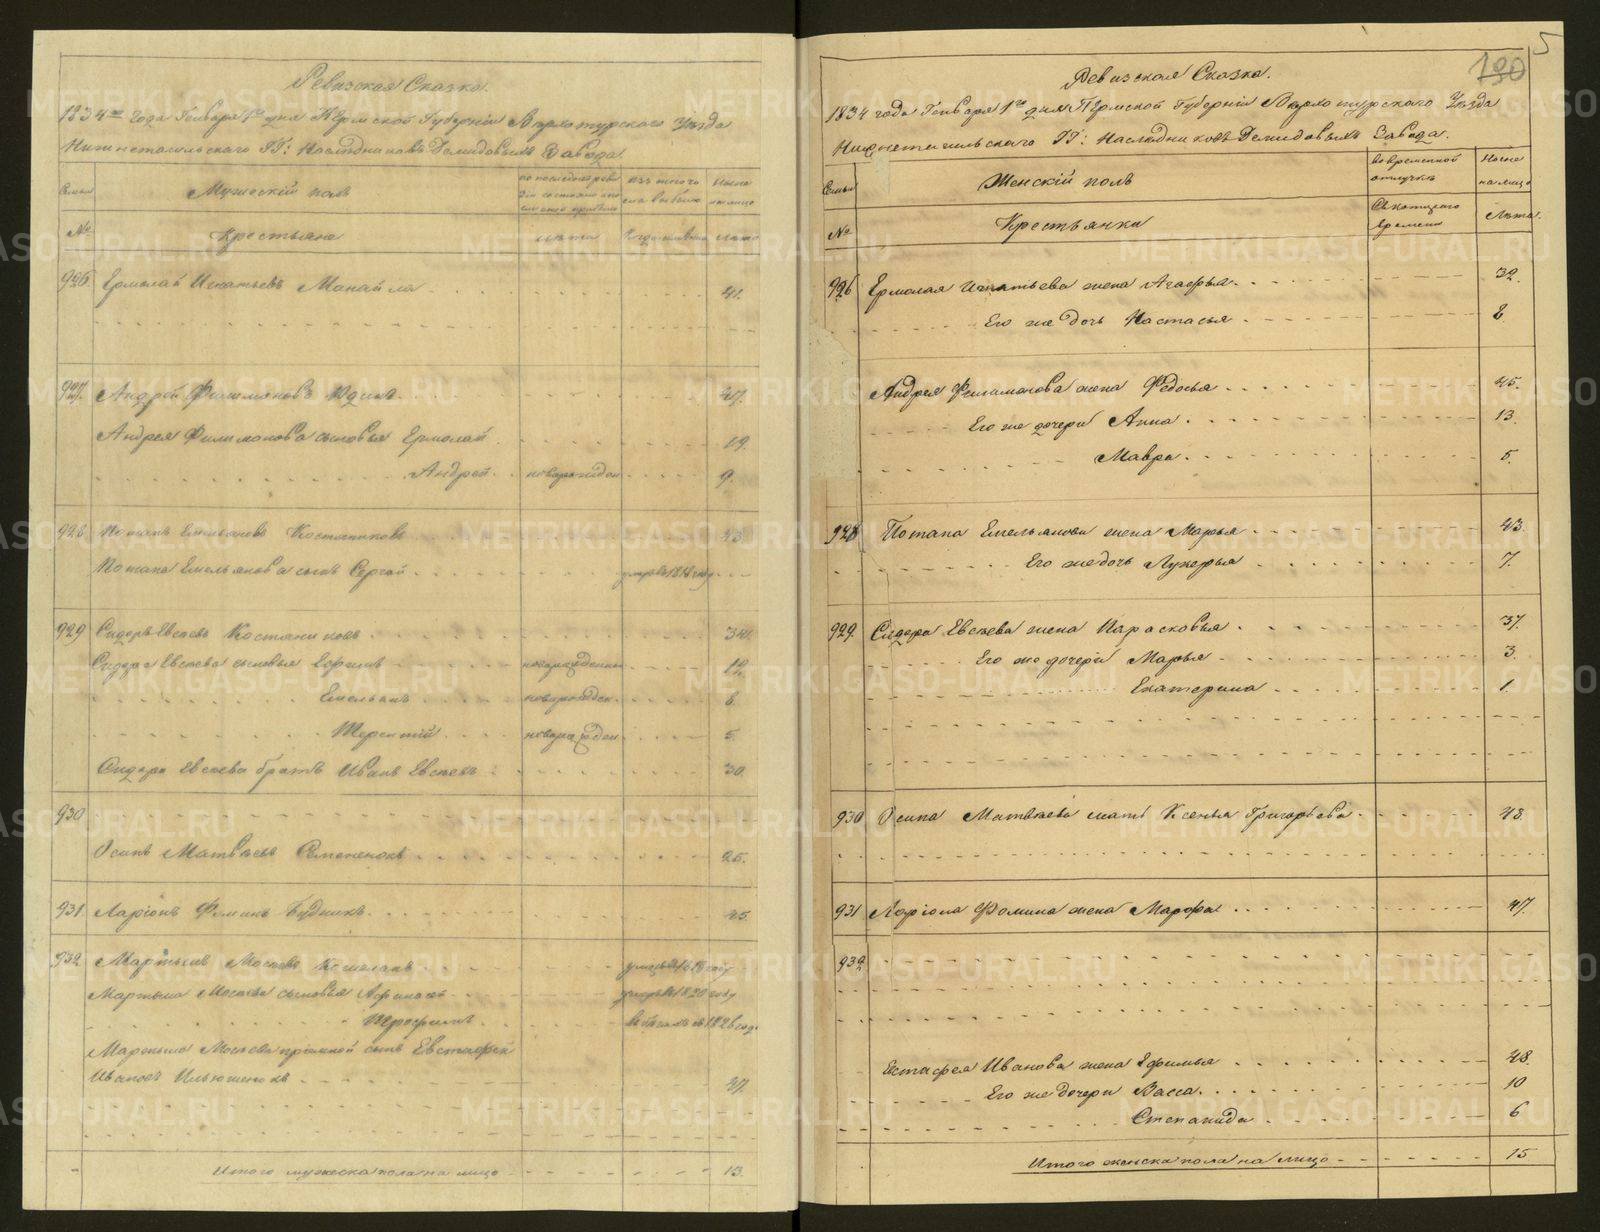 Ревизская Сказка.
1834го года Генваря 1го дня Пермской Губерніи Верхотурского Уѣзда
Нижнетагильского ГГ: Наслѣдниковъ Демидовыхъ Завода.
Семьи
Мужескій полъ
по последней реви
зіи состояло
изъ того чи
сла выбыло
Ныне
на лицо
№
Крестьяне
лѣта
Когда именно
Лѣта
926 Ермолай Игнатьевъ Манайла 41.
927. Андрей Филимоновъ Юдинъ 47.
Андрея Филимонова сыновья Ермолай 19.
Андрей новорожден 9.
928 Потапъ Емельяновъ Костяниковъ 43.
Потапа Емельянова сынъ Сергей умеръ въ 1818 году
929 Сидоръ Евсеевъ Костяниковъ
Сидора Евсеева сыновья Ефимъ новорожденъ 12.
Емельянъ новорожден. 6
Терентій новорожден 5.
Сидора Евсеева братъ Иванъ Евсеевъ 30
930
Осипъ Матвеевъ 25.
931 Ларіонъ Фоминъ Будникъ 45.
932 Мартынъ Мосеевъ
Мартына Мосеева сыновья Афонасей умеръ въ 1820 году
Трофимъ въ бегахъ съ 1826 году
Мартына Мосеева пріемной сынъ Евстафей
Ивановъ Ильюшенокъ 47.
Итого мужеска пола на лицо 13.
5
190
Ревизская Сказка.
1834 года Генваря 1го дня Пермской Губерніи Верхотурского Уѣзда
Нижнетагильского ГГ: Наслѣдниковъ Демидовыхъ Завода.
Семьи
Женскій полъ
во временной
отлучкѣ
Ныне
на лицо
№
Крестьянки
Съ которого
времени
Лѣта.
926 Ермолая Игнатьева жена Агафья 32.
Его же дочь Настасья 8
Андрея Филимонова жена Федосья 45.
Его же дочери Анна 13.
Мавра 5.
928 Потапа Емельянова жена Марья 43.
Его же дочь Лукерья 7.
929. Сидора Евсеева жена Парасковья 37.
Его же дочери Марья 3.
Екатерина 1.
930 Осипа Матвеева мать Ксенья Григорьева 48.
931 Ларіона Фомина жена Марфа 47.
932
Естафея Иванова жена Ефимья 48.
Его же дочери Васса 10
Степанида 6
Итого женска пола на лицо 15
METRIKI.GASO-URAL.RU